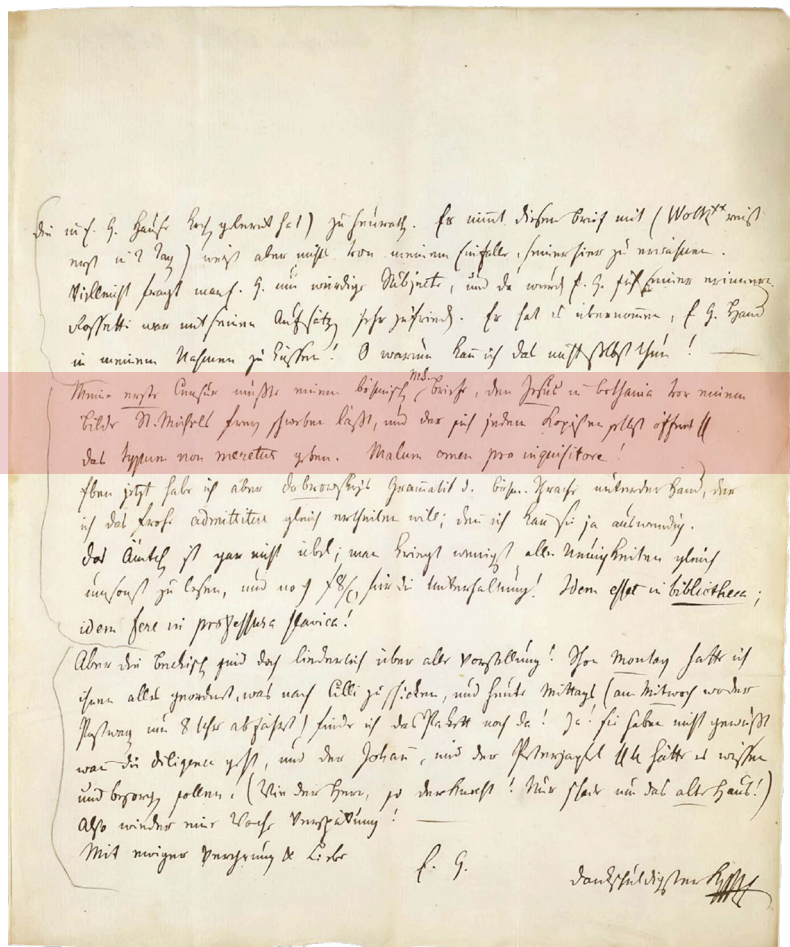 die in E. G. Hause koch gelernt hat) zu heurath. Er nimmt diesen Brief mit (Wolk xx reist
erst in 2 Tag) weiß aber nichts von meinem Einfalle, seiner hier zu erwähnen.
Vielleicht fragt man E. G. um würdige Subjecte, und da würd E. G. sich seiner erinnern.
Rossetti war mit seinen Aufsätz sehr zufried. Er hat es übernommen, E. G. Hand
in meinem Nahmen zu küssen! O warum kann ich das nicht selbst thun! —
Meine erste Censur mußte einem böhmisch Ms. briefe, den Jesus in bethania vor einem
Bilde St. Michels frey schweben läßt, und der sich jedem Kopisten selbst öffnet
das typum non meretur geben. Malum omen pro inquisitore!
Eben jetzt habe ich aber dobrowskys Grammatik d. böhm. Sprache unter der Hand, der
ich das frohe admittitur gleich ertheilen will; denn ich kann sie ja auswendig.
Das Ämtch ist gar nicht übel; man kriegt wenigst alle Neuigkeiten gleich
umsonst zu lesen, und noch für die Unterhaltung! Idem esset in bibliotheca;
idem fere in professura slavica!
Aber die Beckisch sind doch liederlich über alle Vorstellung! Schon Montag hatte ich
ihnen alles geordnet, was nach Cilli zu schicken, und heute Mittags (am Mitwoch wo der
Postwag um 8 Uhr abfährt) finde ich das Paket noch da! Ja! sie haben nicht gewußt
wan die Diligence geht, und der Johann, und der hätte es wissen
und besorg sollen. (Wie der Herr, so der Knecht! Nur schade um das alte Haus!)
Also wieder eine Woche Verspätung! —
Mit ewiger Verehrung & Liebe E. G.
dankschuldigster